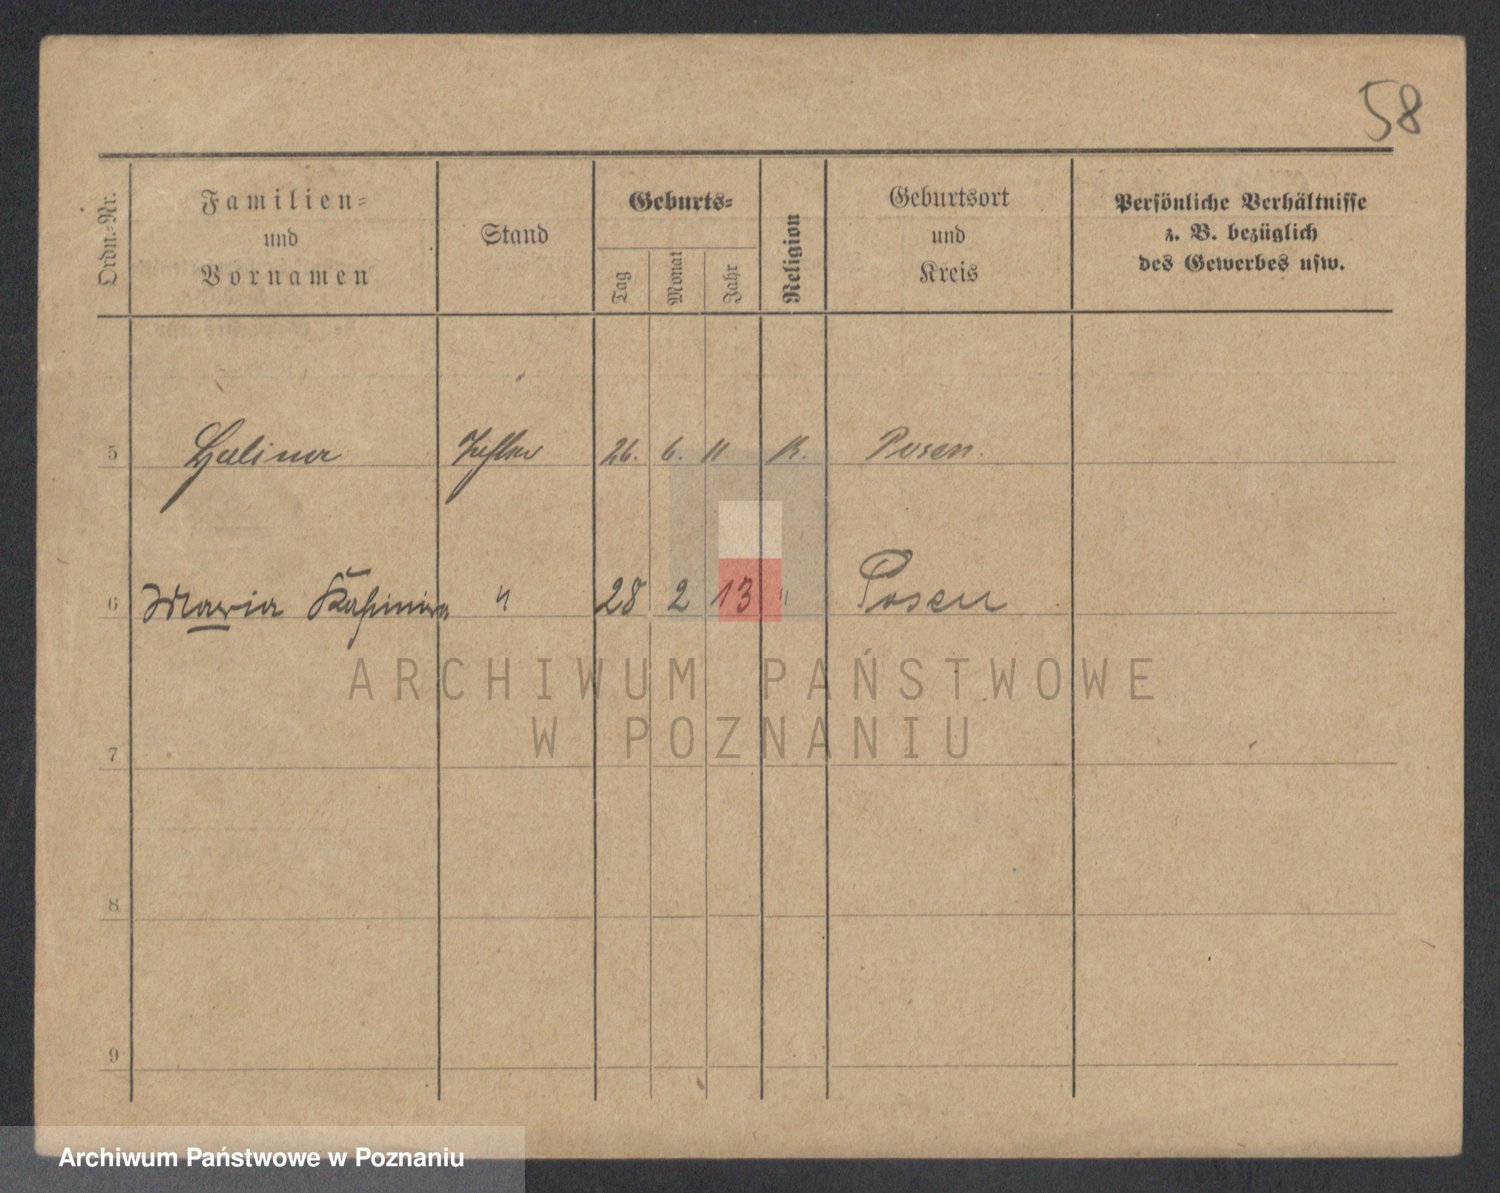 58
Ordn.-Nr.
Familien-
und
Vornamen
Stand
Geburts-
Tag
Monat
Jahr
Religion
Geburtsort
und
Kreis
Persönliche Verhältnisse
z. B. bezüglich
des Gewerbes usw.
5 Halina 26. 6. 11 K. Posen.
6 Maria Kasimira " 28 2 13 " Posen
ARCHIWUM PAŃSTWOWE
W POZNANIU
7
8
9
Archiwum Państwowe w Poznaniu